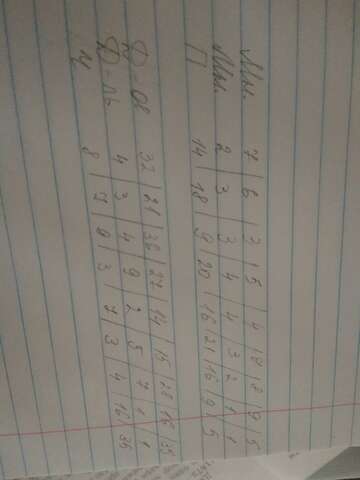 Мн. 7 | 6 | 3 | 5 | 4 | 8 | 9 | 5
Мн. 2 | 3 | 3 | 4 | 4 | 3 | 2 | 1 | 1
П 14 | 18 | 9 | 20 | 16 | 21 | 16 | 9 | 5
Д-ое 32 | 21 | 36 | 27 | 14 | 15 | 28 | 16 | 35
Д-ль 4 | 3 | 4 | 9 | 2 | 5 | 7 | 1 | 1
Ч 8 | 7 | 9 | 3 | 7 | 3 | 4 | 16 | 35